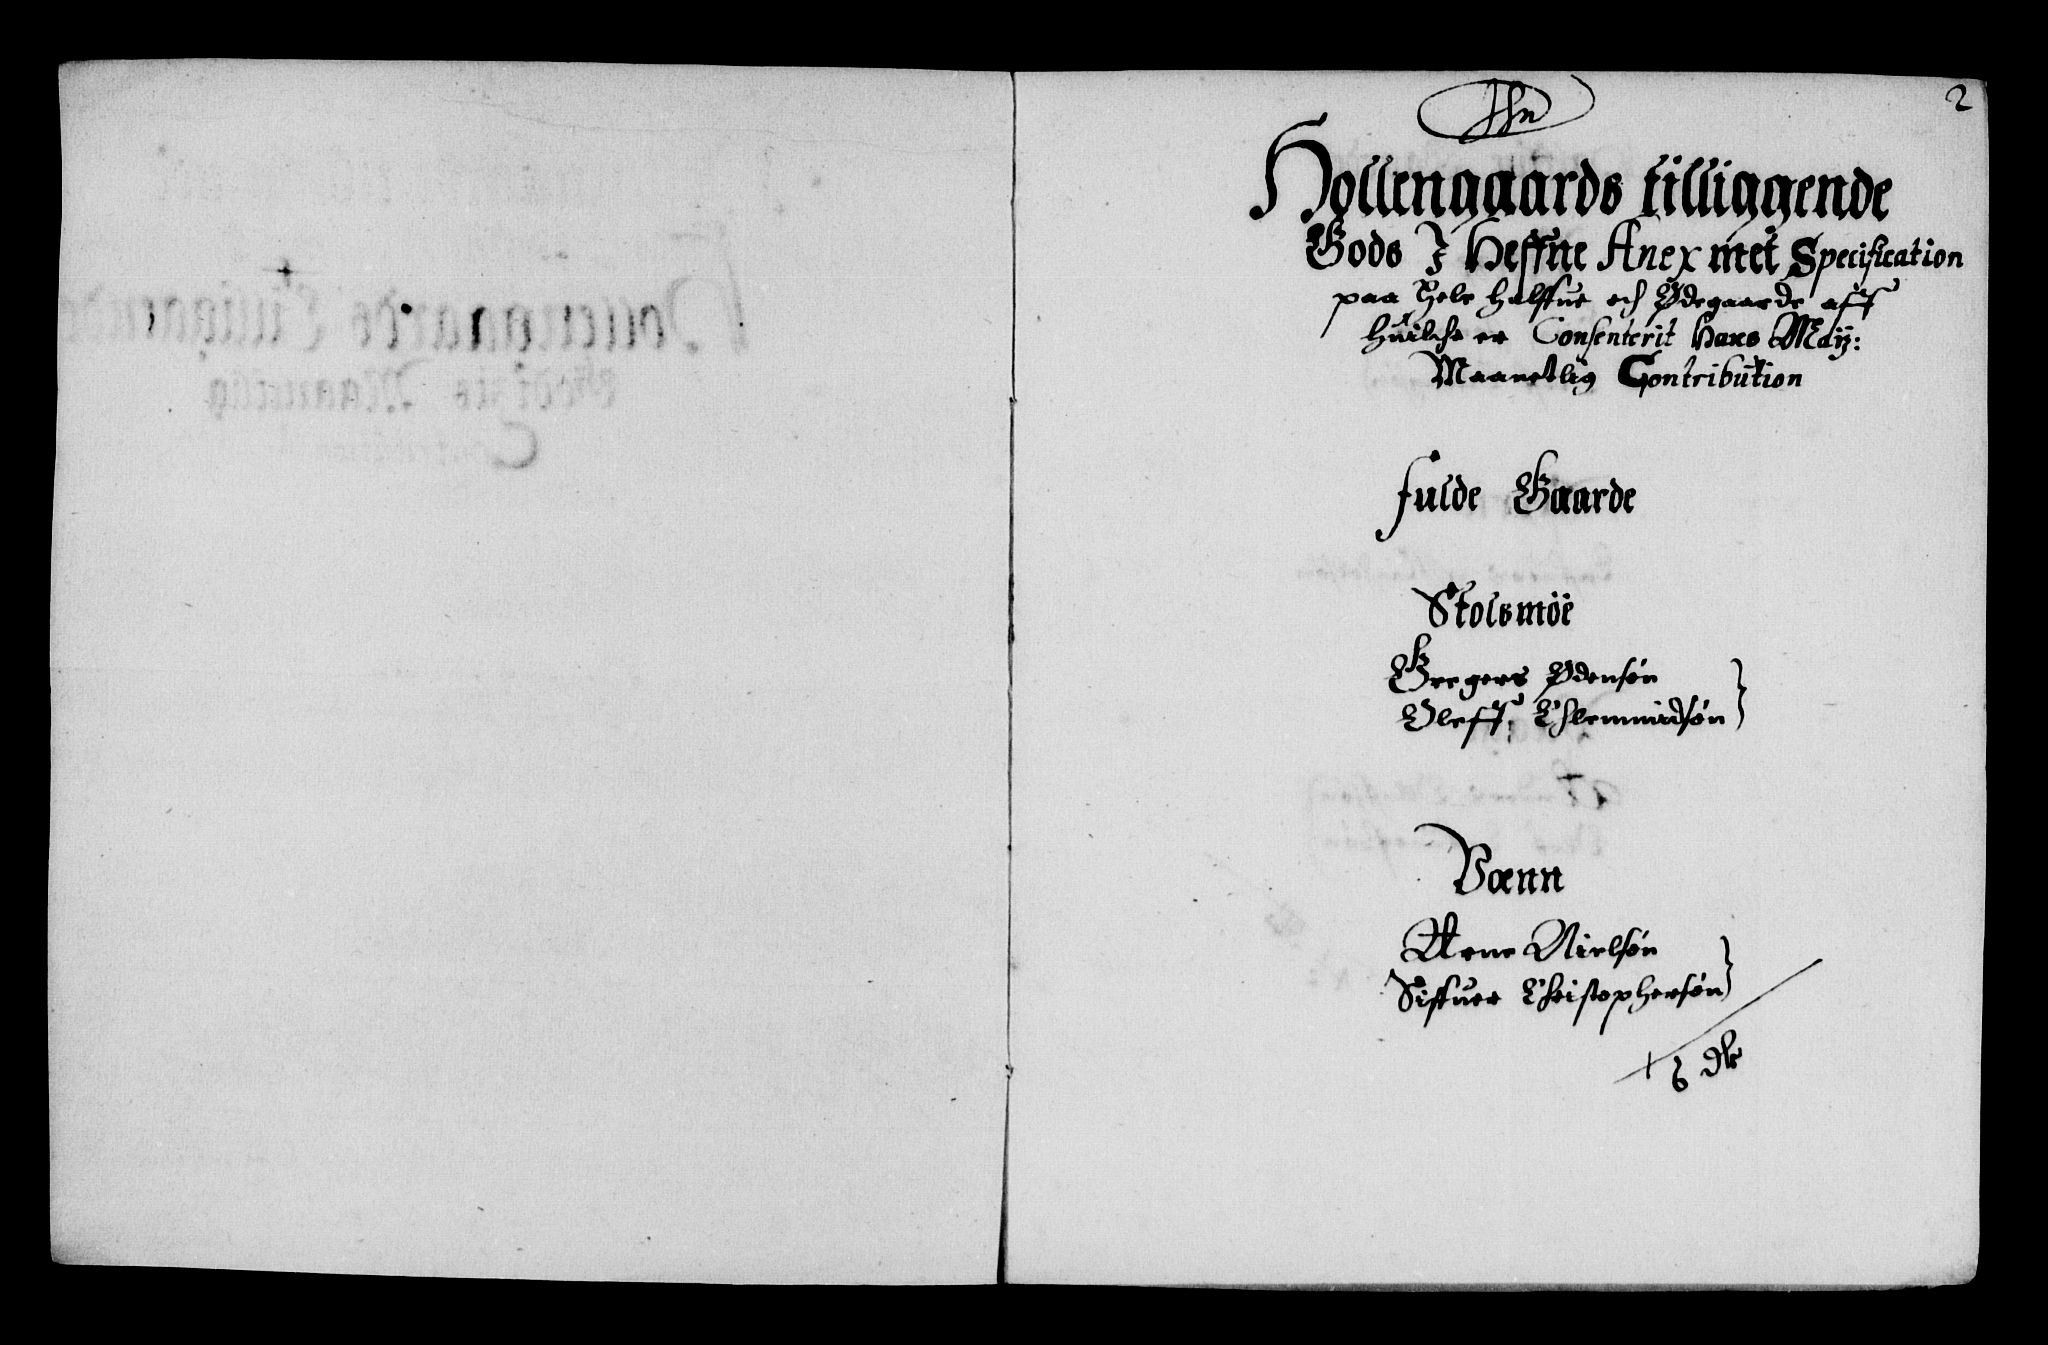 2
Hollenggaards tilliggende
Gods I Heffne Anex met Specification
paa Hele halffue och Ødegaarde aff
huilche er Consenterit Hans May:
Maanetlig Contribution
fulde Gaarde
Stolsmöe
Gregers Ødensøn
Oleff
Voenn
Arne Nielsøn
Siffuer Christophersøn
6 dlr